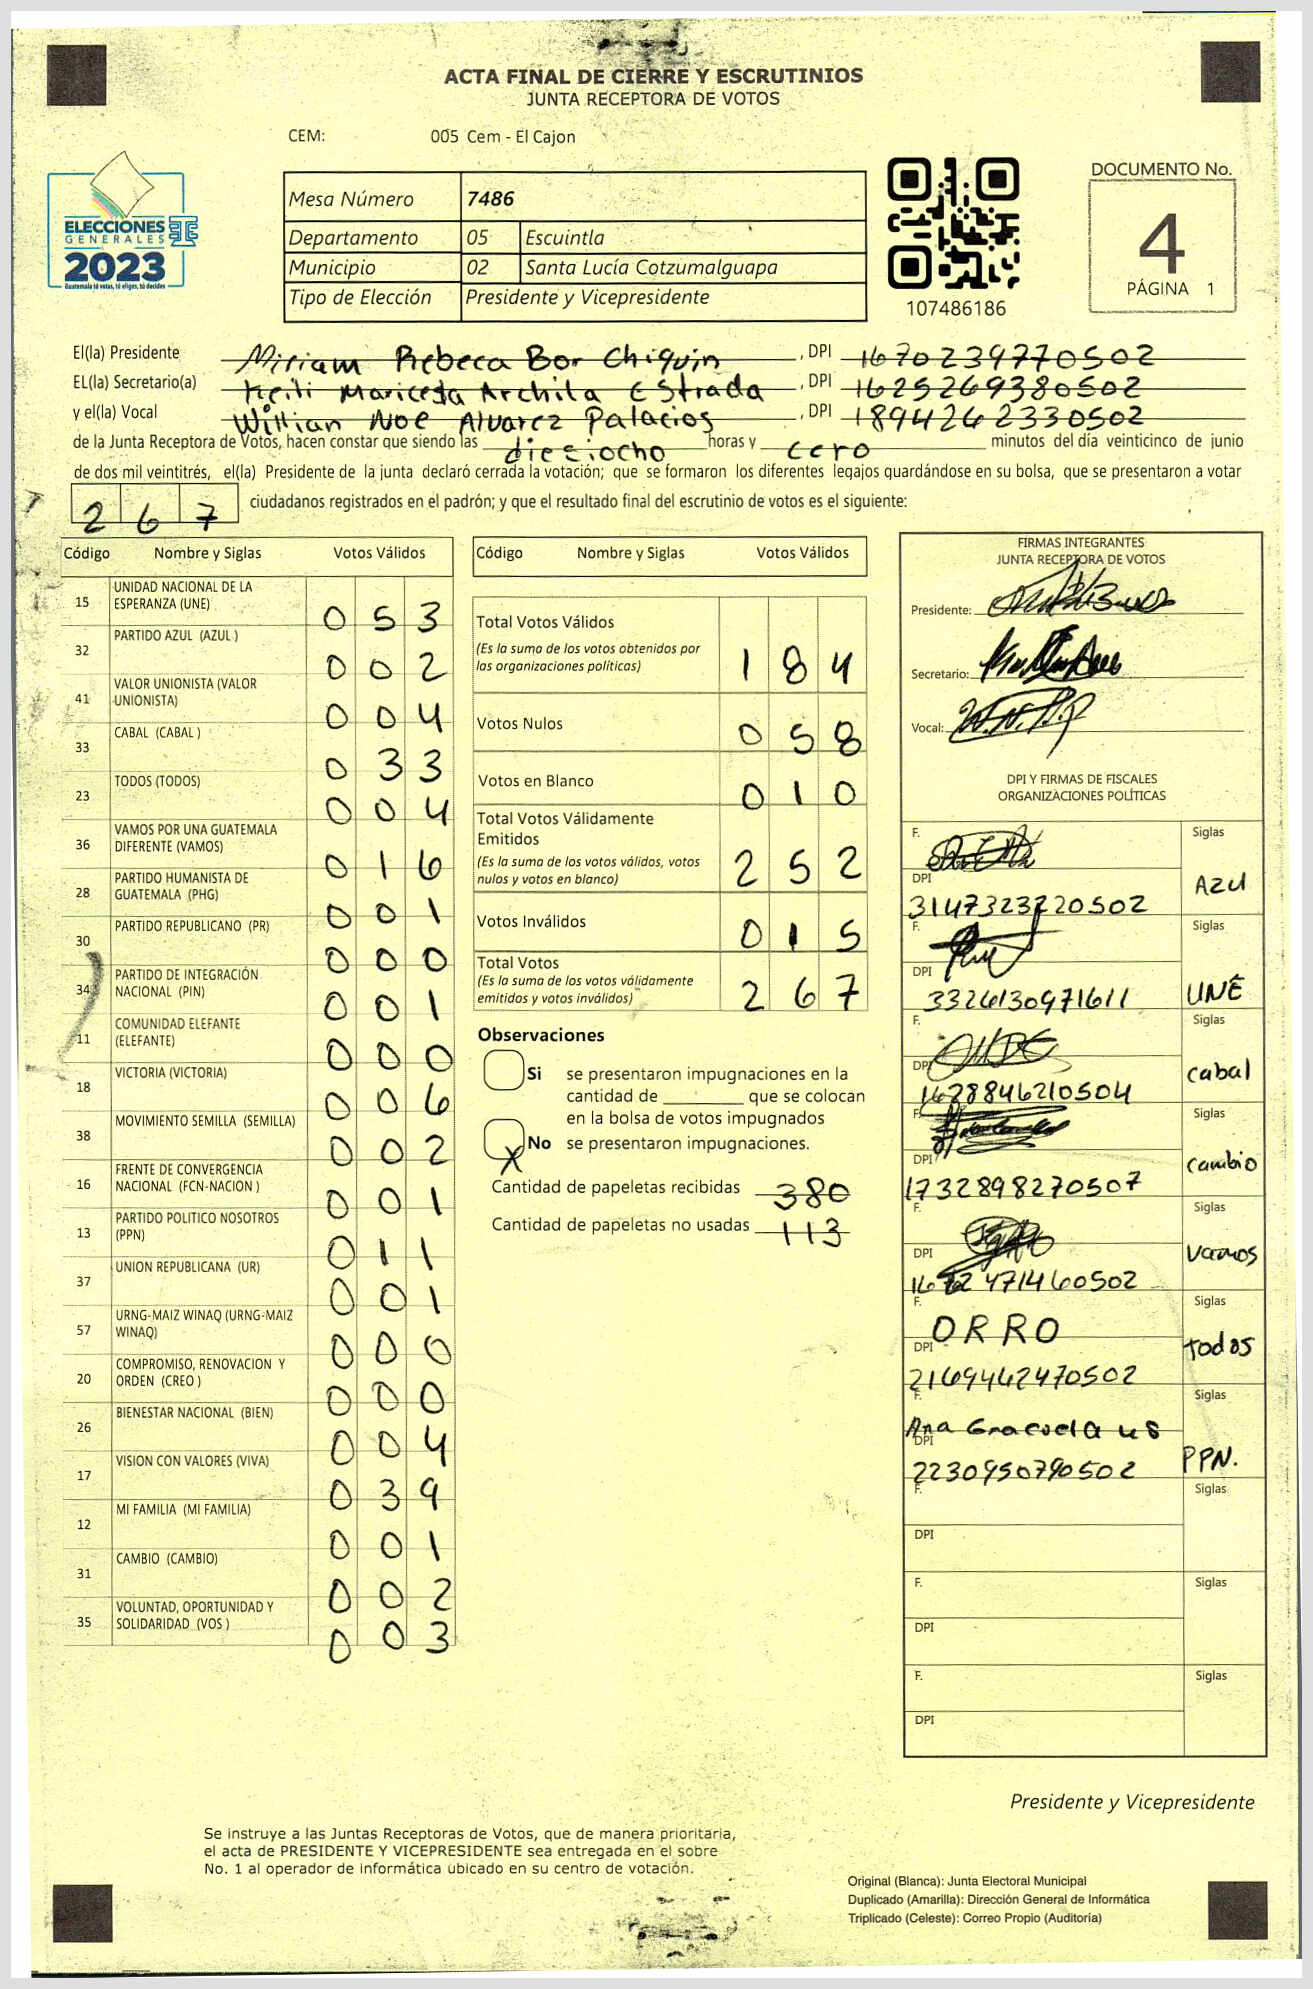 ACTA FINAL DE CIERRE Y ESCRUTINIOS
JUNTA RECEPTORA DE VOTOS
CEM: 005 Cem - El Cajon
ELECCIONES
GENERALES
2023
Guatemala tú votas, tú eliges, tú decides
Mesa Número 7486
Departamento 05 Escuintla
Municipio 02 Santa Lucía Cotzumalguapa
Tipo de Elección Presidente y Vicepresidente
107486186
DOCUMENTO No.
4
PÁGINA 1
El(la) Presidente Miriam Rebeca Bor Chiquin, DPI 1670239770502
EL(la) Secretario(a) Keiti Maricela Archila EStrada, DPI 1625269380502
y el(la) Vocal Willian Noe Alvarez Palacios, DPI 1894262330502
de la Junta Receptora de Votos, hacen constar que siendo las dieciocho horas y cero minutos del día veinticinco de junio
de dos mil veintitrés, el(la) Presidente de la junta declaró cerrada la votación; que se formaron los diferentes legajos guardándose en su bolsa, que se presentaron a votar
267 ciudadanos registrados en el padrón; y que el resultado final del escrutinio de votos es el siguiente:
Código Nombre y Siglas Votos Válidos
15 UNIDAD NACIONAL DE LA ESPERANZA (UNE) 053
32 PARTIDO AZUL (AZUL ) 002
41 VALOR UNIONISTA (VALOR UNIONISTA) 004
33 CABAL (CABAL ) 033
23 TODOS (TODOS) 004
36 VAMOS POR UNA GUATEMALA DIFERENTE (VAMOS) 016
28 PARTIDO HUMANISTA DE GUATEMALA (PHG) 001
30 PARTIDO REPUBLICANO (PR) 000
34 PARTIDO DE INTEGRACIÓN NACIONAL (PIN) 001
11 COMUNIDAD ELEFANTE (ELEFANTE) 000
18 VICTORIA (VICTORIA) 006
38 MOVIMIENTO SEMILLA (SEMILLA) 002
16 FRENTE DE CONVERGENCIA NACIONAL (FCN-NACION ) 001
13 PARTIDO POLITICO NOSOTROS (PPN) 011
37 UNION REPUBLICANA (UR) 001
57 URNG-MAIZ WINAQ (URNG-MAIZ WINAQ) 000
20 COMPROMISO, RENOVACION Y ORDEN (CREO ) 000
26 BIENESTAR NACIONAL (BIEN) 004
17 VISION CON VALORES (VIVA) 039
12 MI FAMILIA (MI FAMILIA) 001
31 CAMBIO (CAMBIO) 002
35 VOLUNTAD, OPORTUNIDAD Y SOLIDARIDAD (VOS ) 003
Código Nombre y Siglas Votos Válidos
Total Votos Válidos 184
(Es la suma de los votos obtenidos por
las organizaciones políticas)
Votos Nulos 058
Votos en Blanco 010
Total Votos Válidamente
Emitidos 252
(Es la suma de los votos válidos, votos
nulos y votos en blanco)
Votos Inválidos 015
Total Votos 267
(Es la suma de los votos válidamente
emitidos y votos inválidos)
Observaciones
Si se presentaron impugnaciones en la
cantidad de ________ que se colocan
en la bolsa de votos impugnados
X No se presentaron impugnaciones.
Cantidad de papeletas recibidas 380
Cantidad de papeletas no usadas 113
FIRMAS INTEGRANTES
JUNTA RECEPTORA DE VOTOS
Presidente:
Secretario:
Vocal:
DPI Y FIRMAS DE FISCALES
ORGANIZACIONES POLÍTICAS
F. Siglas
DPI 3147323220502 AZUl
F. Siglas
DPI 3326130971611 UNE
F. Siglas
DPI 1628846210504 cabal
F. Siglas
DPI 1732898270507 cambio
F. Siglas
DPI 1672471460502 Vamos
F. ORRO Siglas
DPI 2169462470502 todos
F. Ana Siglas
DPI 2230950790502 PPN.
F. Siglas
DPI
F. Siglas
DPI
F. Siglas
DPI
Presidente y Vicepresidente
Se instruye a las Juntas Receptoras de Votos, que de manera prioritaria,
el acta de PRESIDENTE Y VICEPRESIDENTE sea entregada en el sobre
No. 1 al operador de informática ubicado en su centro de votación.
Original (Blanca): Junta Electoral Municipal
Duplicado (Amarilla): Dirección General de Informática
Triplicado (Celeste): Correo Propio (Auditoría)